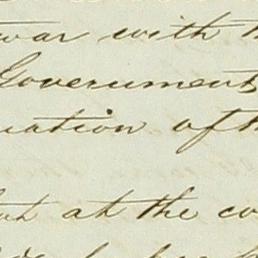 war with
Government
uation of th
at the co